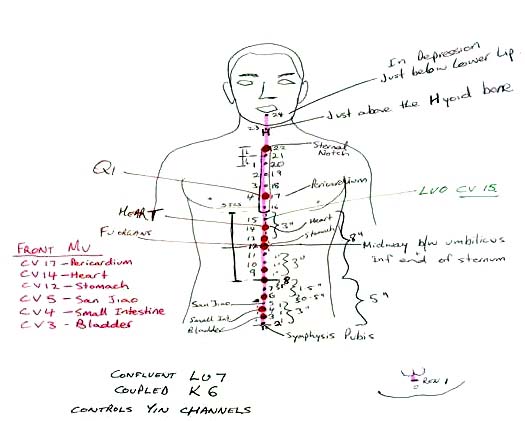 In Depression
Just below Lower Lip
24
Just above the Hyoid bone
23
H
22
Sternal
Notch
21
1 20
2 19
3 18
4 17
Q1
Pericardium
16
LUO CV 15
15
HEART
14
3"
Heart
Stomach
13
FU ORGANS
12
8"
Midway b/w umbilicus
inf end of sternum
11
10
9
3"
8
7
6
1.5"
5"
San Jiao
5
0.5"
Small Int
4
3
3"
Bladder
2
Symphysis Pubis
FRONT MU
CV 17 - Pericardium
CV 14 - Heart
CV 12 - Stomach
CV 5 - San Jiao
CV 4 - Small Intestine
CV 3 - Bladder
CONFLUENT LU 7
COUPLED K 6
CONTROLS YIN CHANNELS
REN 1